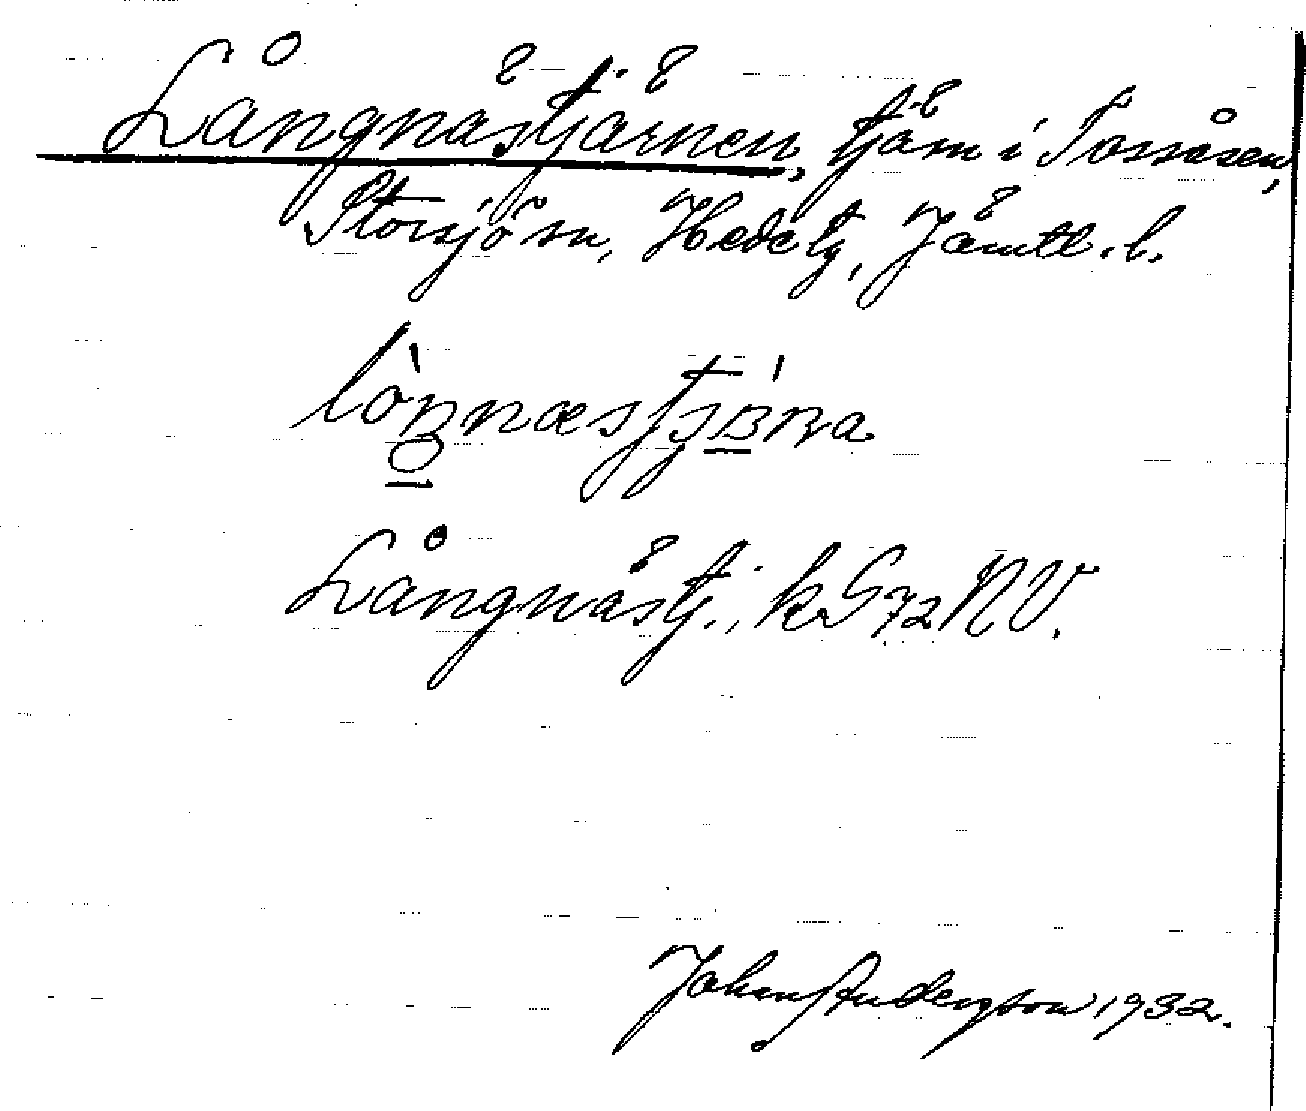 Långnästjärnen, tjärn i Tossåsen,
Storsjö sn, Hede tg, Jämtl. l.
Långnästj., kS 72 NV.
Johan Andersson 1932.